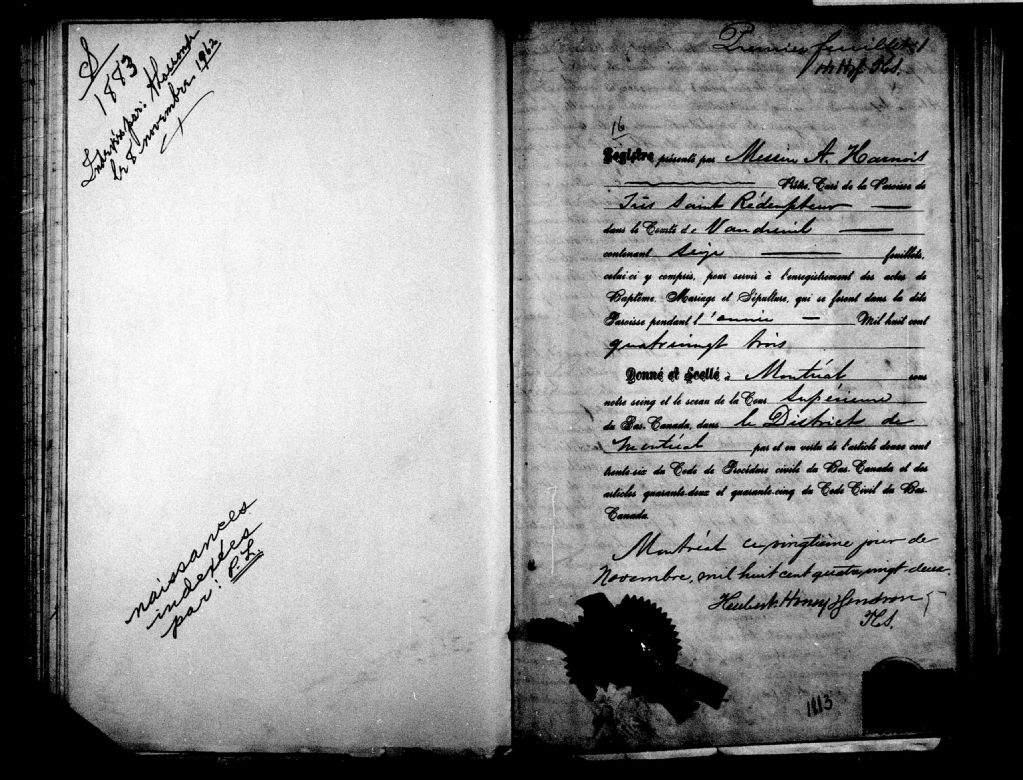 S
1883
par:
le 8 novembre 1962
naissances
indexées
par: P.L.
Premier feuillet
16
Registre, présenté par Messire A. Harnois
Ptre, Curé de la Paroisse de
Très Saint Rédempteur
dans le Comté de Vaudreuil
contenant Seize feuillets,
celui-ci y compris, pour servir à l'enregistrement des actes de
Baptême, Mariage et Sépulture, qui se feront dans la dite
Paroisse pendant l'année Mil huit cent
quatrevingt trois
Donné et Scellé à Montréal sous
notre seing et le sceau de la Cour Supérieure
du Bas-Canada, dans le District de
Montréal par et en vertu de l'article douze cent
trente-six du Code de Procédure civile du Bas-Canada et des
articles quarante-deux et quarante-cinq du Code Civil du Bas-
Canada.
Montréal ce vingtième jour de
Novembre, mil huit cent quatre vingt-deux
Honey Gendron
1883